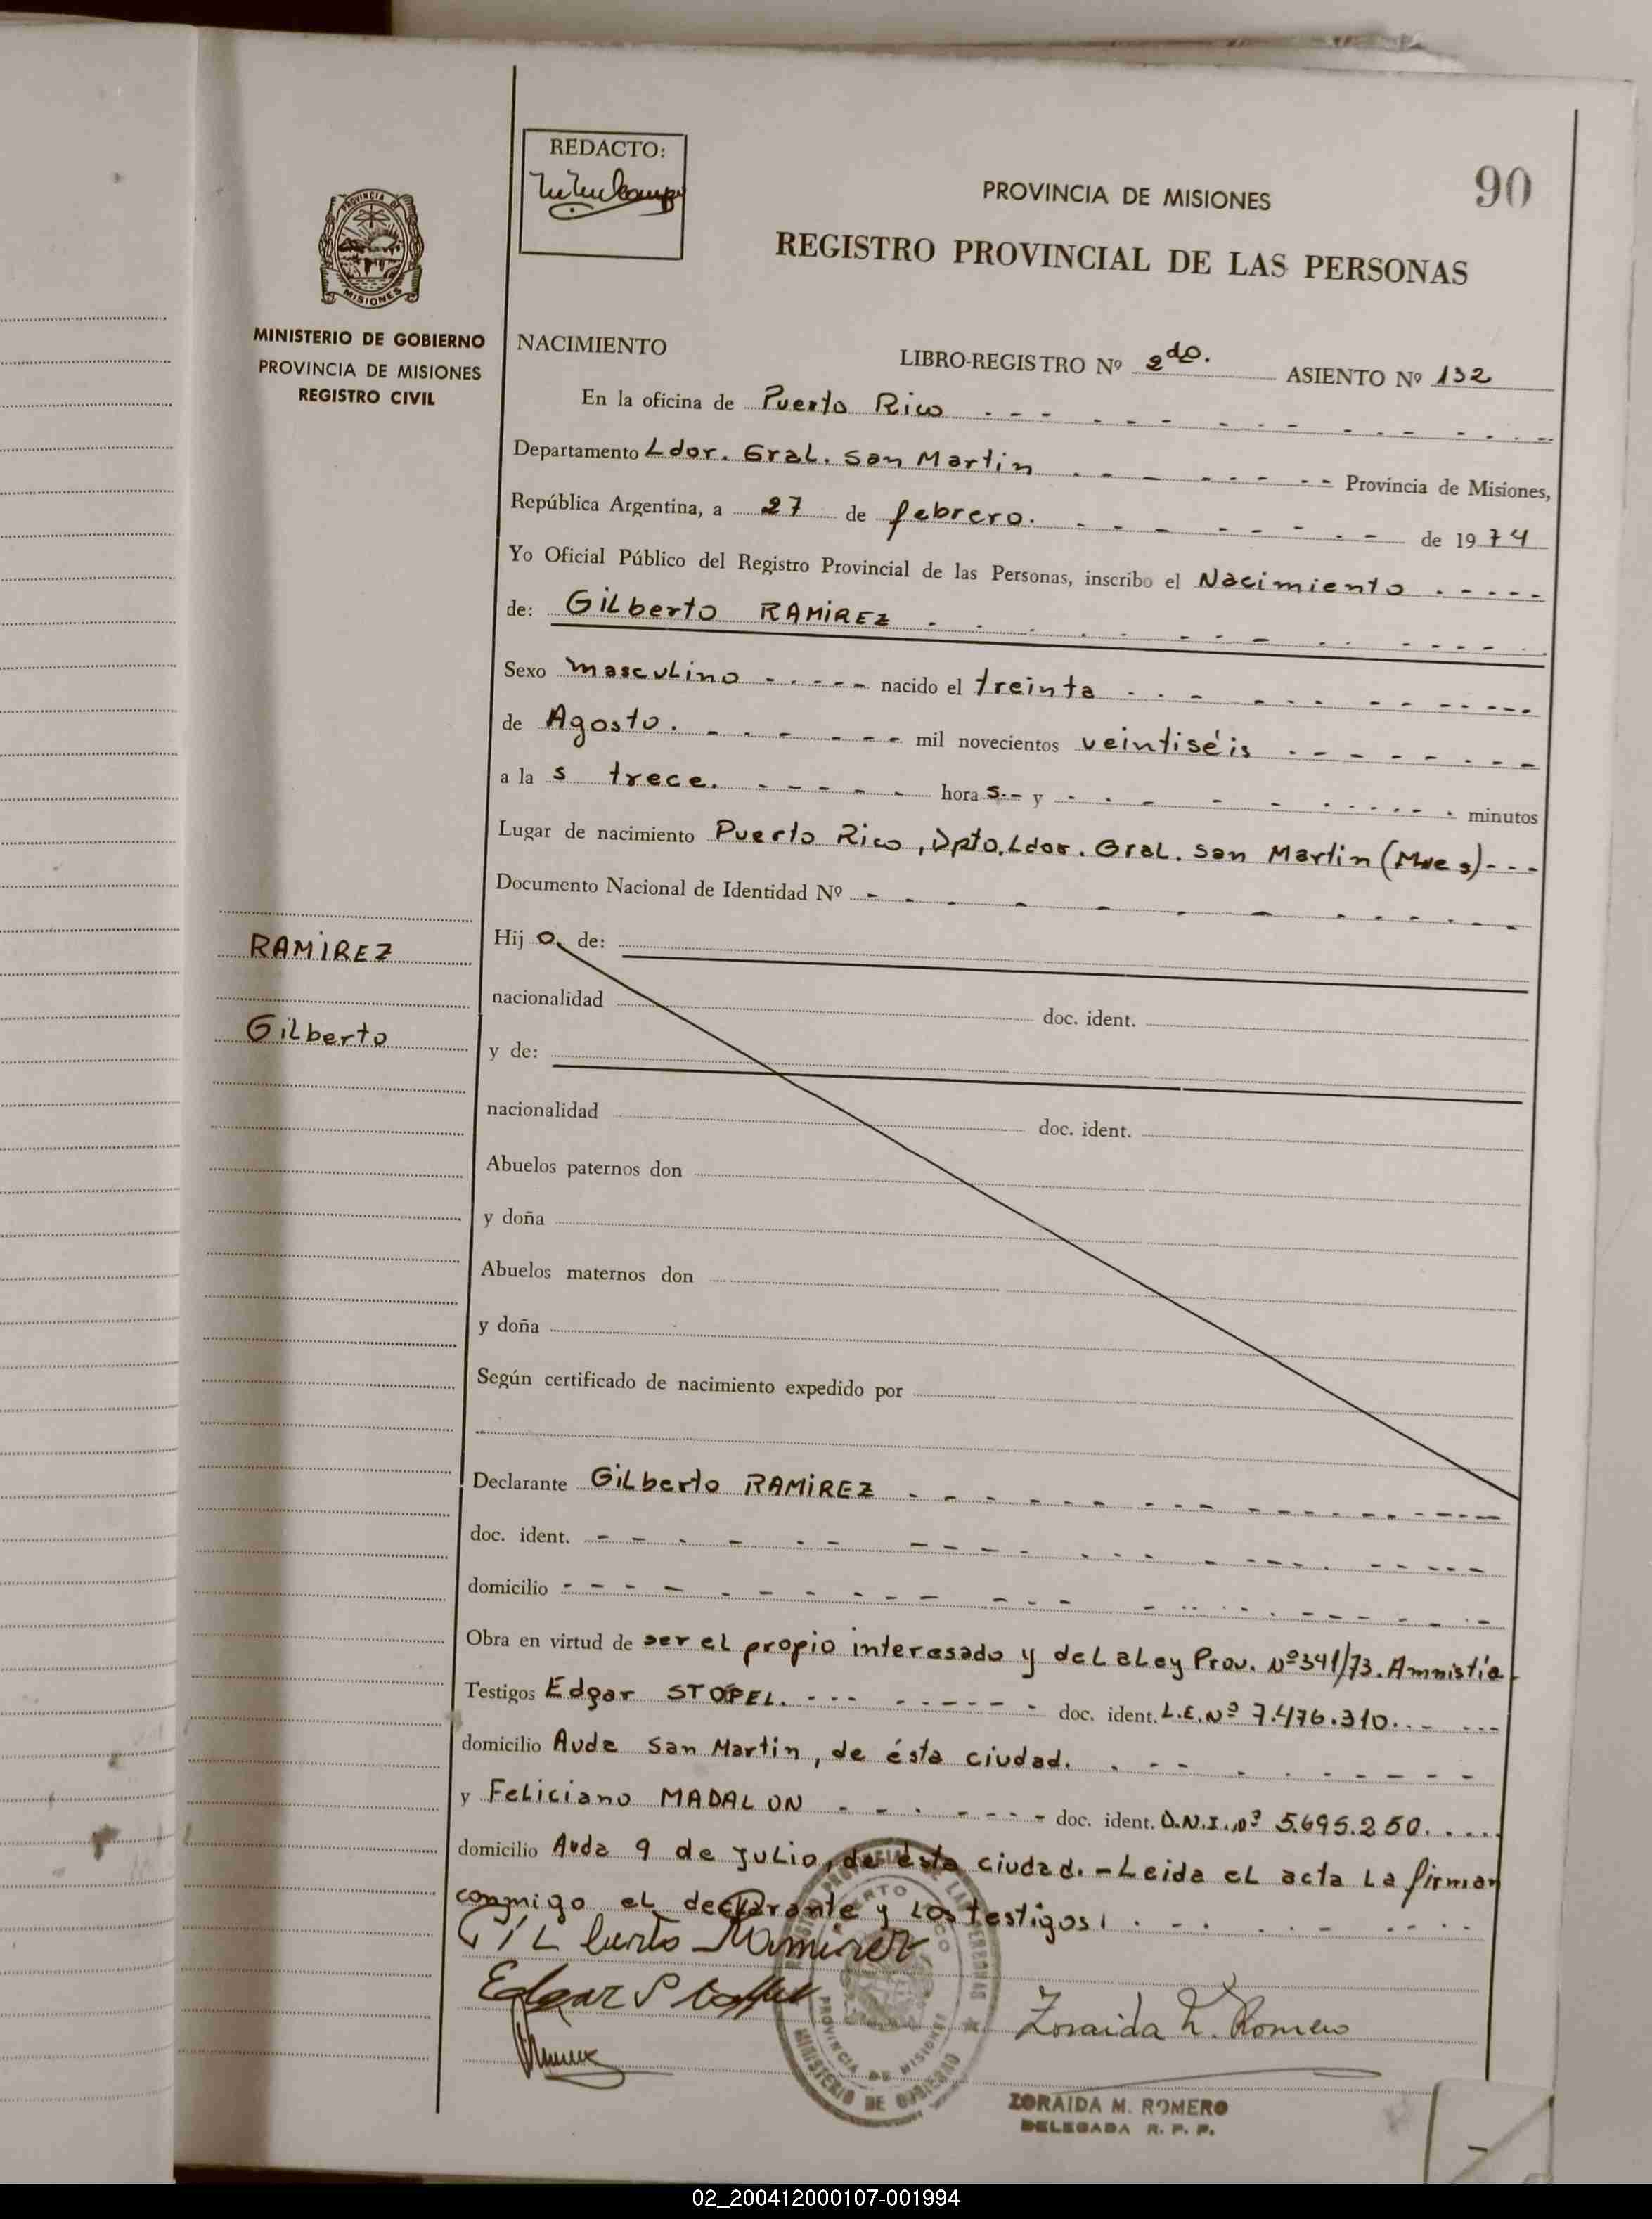 REDACTO:
90
PROVINCIA DE MISIONES
REGISTRO PROVINCIAL DE LAS PERSONAS
PROVINCIA DE
MISIONES
MINISTERIO DE GOBIERNO
PROVINCIA DE MISIONES
REGISTRO CIVIL
NACIMIENTO
LIBRO-REGISTRO Nº 2do. ASIENTO Nº 132
En la oficina de Puerto Rico
Departamento Ldor. Gral. San Martin Provincia de Misiones,
República Argentina, a 27 de febrero. de 1974
Yo Oficial Público del Registro Provincial de las Personas, inscribo el Nacimiento
de: Gilberto RAMIREZ
Sexo masculino nacido el treinta
de Agosto. mil novecientos veintiséis
a la s trece. hora s.- y minutos
Lugar de nacimiento Puerto Rico, Dpto. Ldor. Gral. San Martin (Mnes)
Documento Nacional de Identidad Nº
Hij o. de:
RAMIREZ
nacionalidad doc. ident.
Gilberto
y de:
nacionalidad doc. ident.
Abuelos paternos don
y doña
Abuelos maternos don
y doña
Según certificado de nacimiento expedido por
Declarante Gilberto RAMIREZ
doc. ident.
domicilio
Obra en virtud de ser el propio interesado y de la Ley Prov. Nº 341/73. Amnistía
Testigos Edgar STOPEL. doc. ident. L.E. Nº 7.476.310.
domicilio Avda San Martin, de ésta ciudad.
y Feliciano MADALON doc. ident. D.N.I. Nº 5.695.250.
domicilio Avda 9 de Julio, de ésta ciudad. - Leida el acta la firman
conmigo el declarante y los testigos.
Gilberto Ramirez
Edgar Stoppel
Zoraida M. Romero
REGISTRO PROVINCIAL DE LAS PERSONAS
PUERTO RICO
PROVINCIA DE MISIONES
MINISTERIO DE GOBIERNO
ZORAIDA M. ROMERO
DELEGADA R. P. P.
02_200412000107-001994